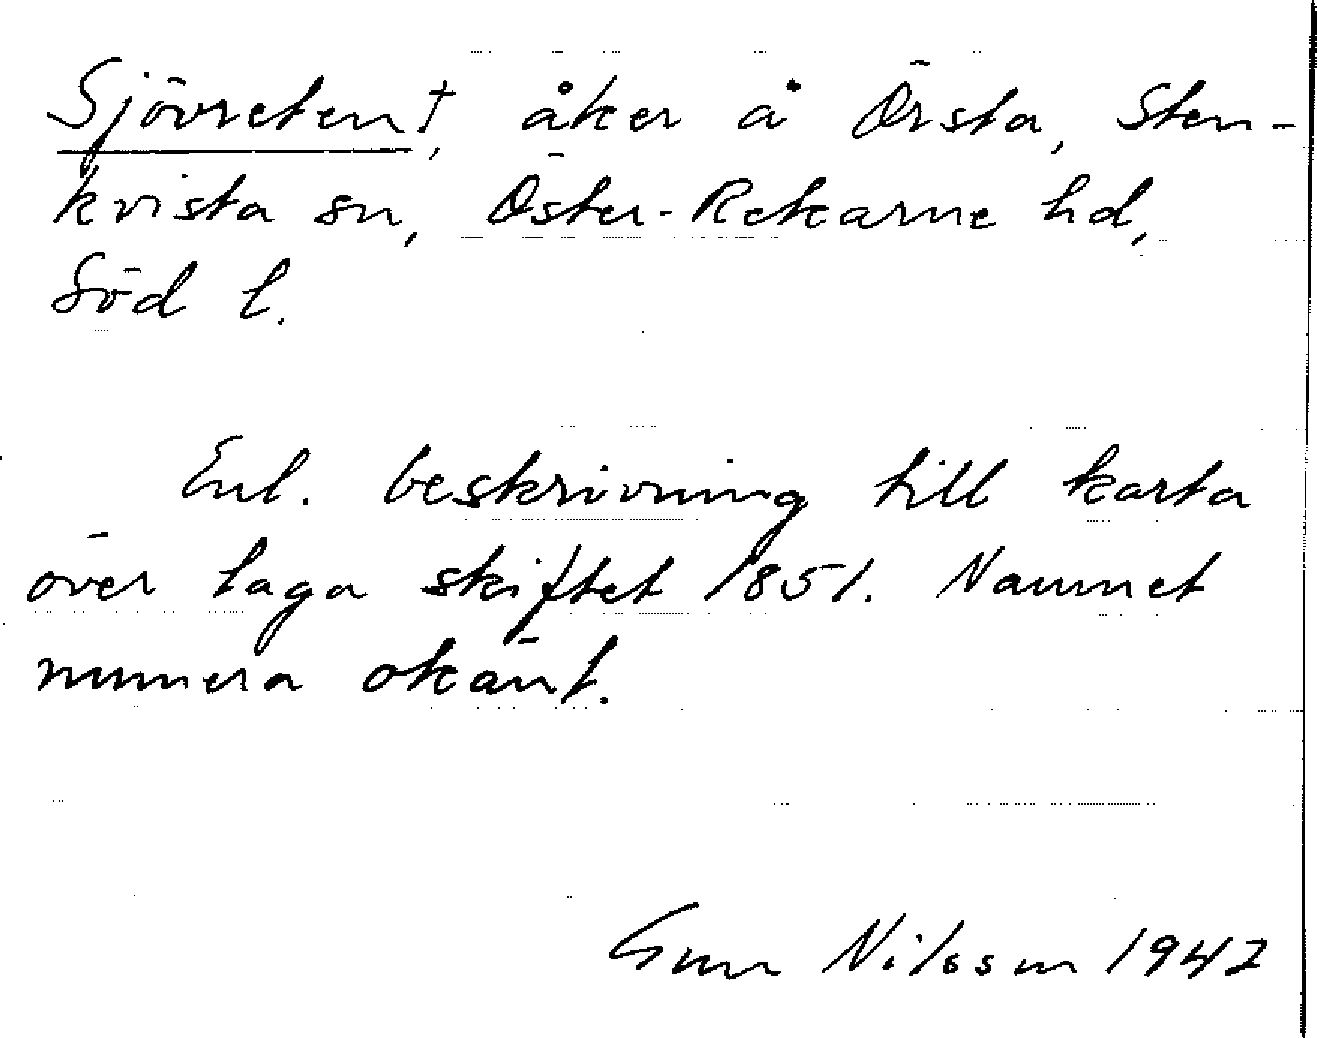 Sjövreten†, åker å Örsta, Sten-
kvista sn, Öster-Rekarne hd,
Söd l.
Enl. beskrivning till karta
över laga skiftet 1851. Namnet
numera okänt.
Gun Nilsson 1942